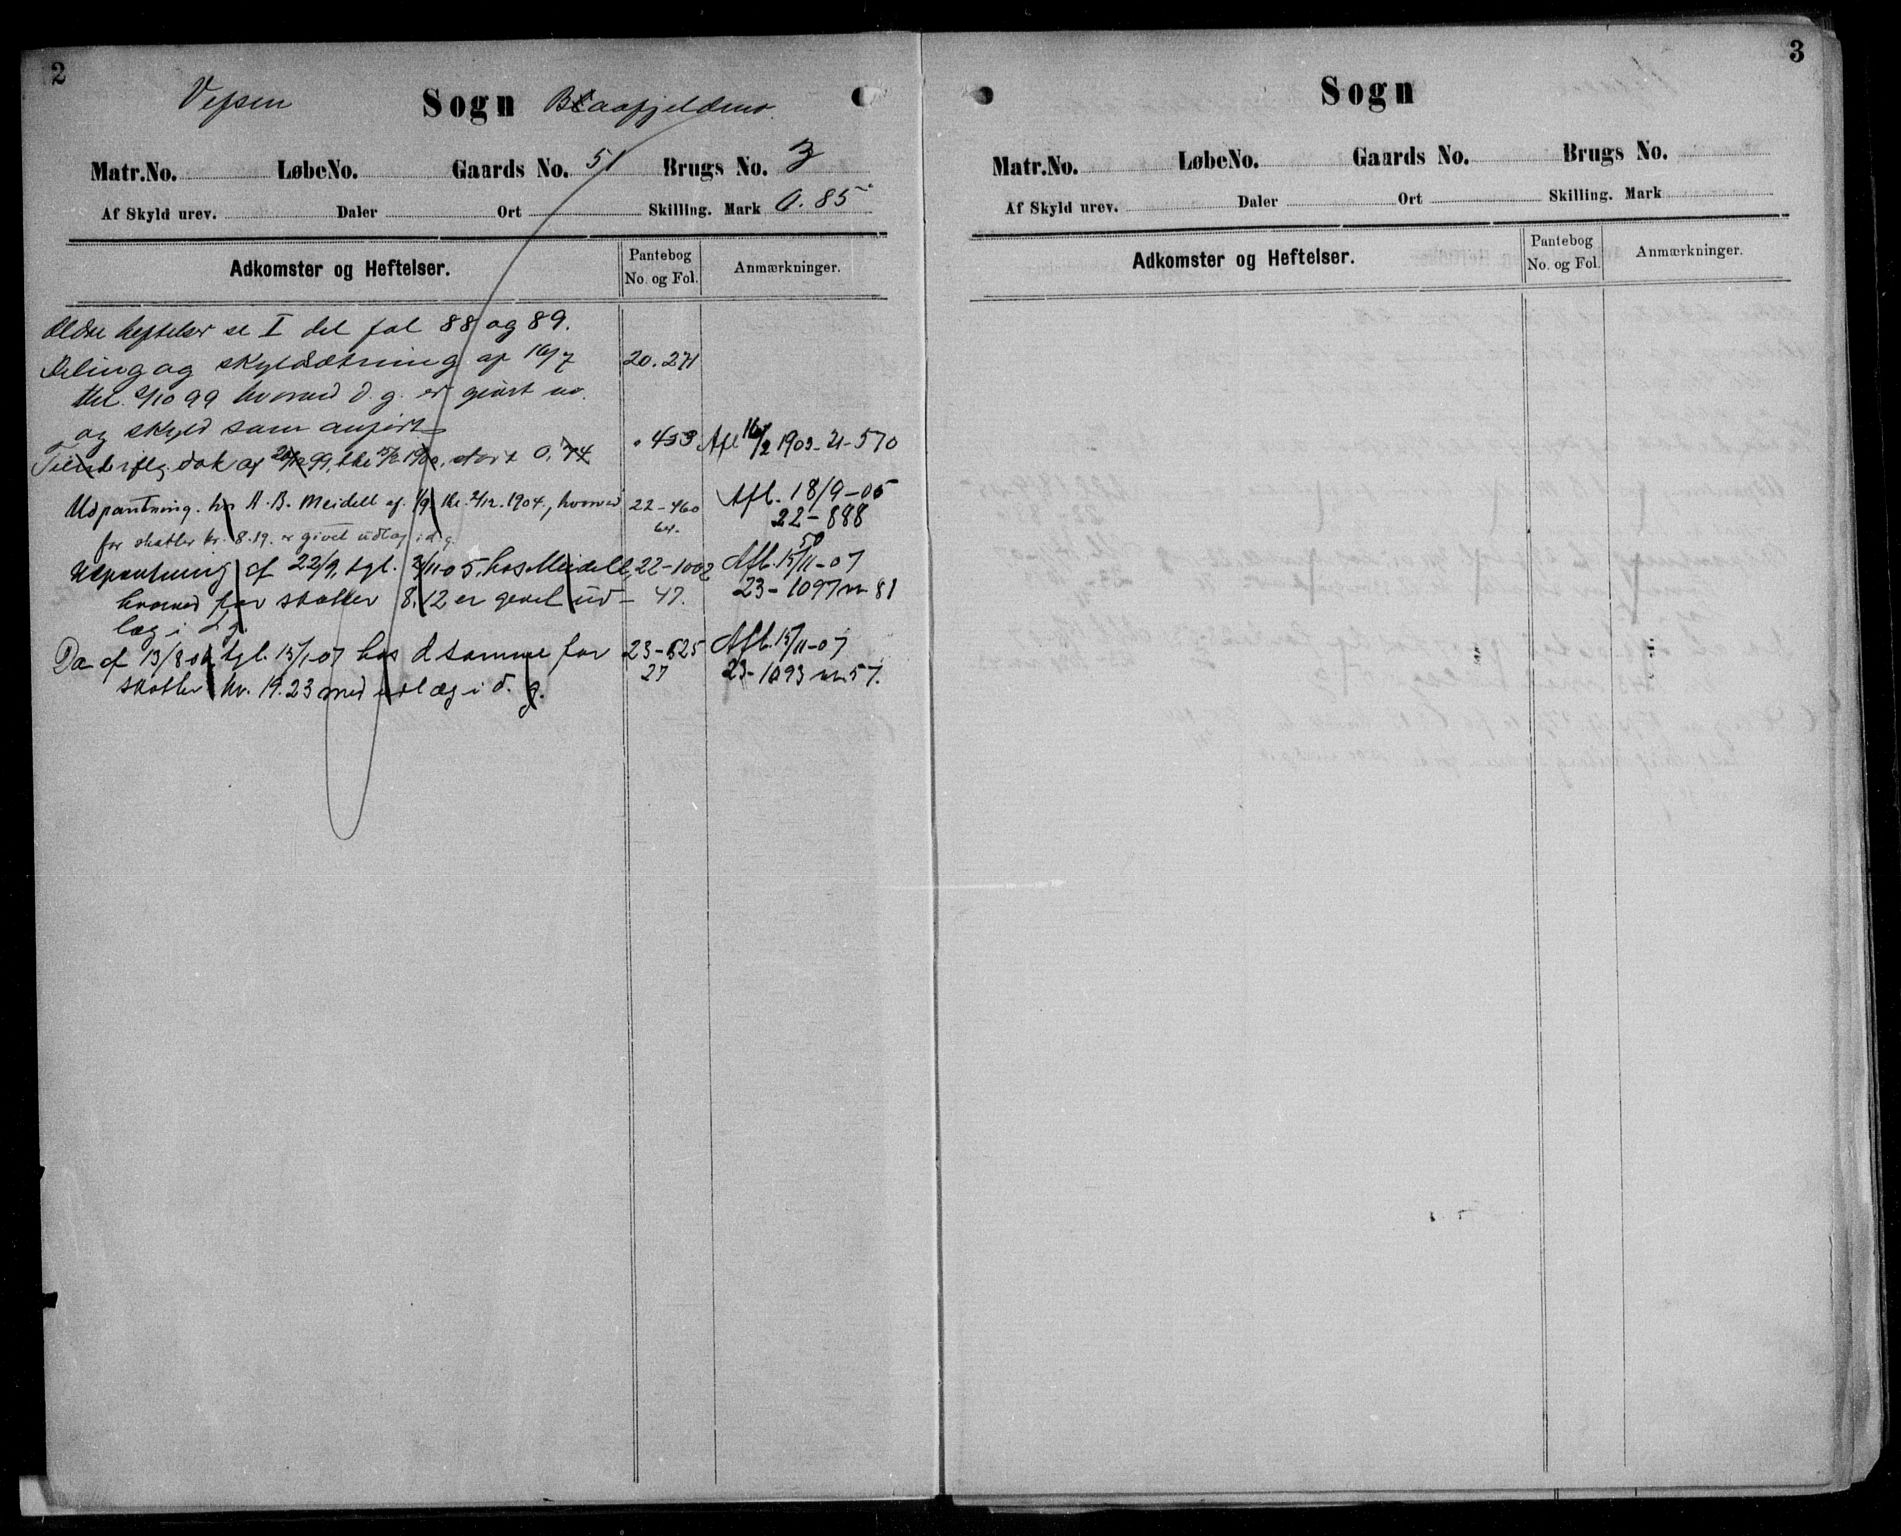 2
Vefsen Sogn Blaafjeldmo.
Matr.No. LøbeNo. Gaards No. 51 Brugs No. 3
Af Skyld urev. Daler Ort Skilling. Mark 0.85
Adkomster og Heftelser. Pantebog No. og Fol. Anmærkninger.
Ældre heftelser se I del fol 88 og 89.
Deling og skyldsætning af 16/7 20. 271
thl. 2/10 99 hvorved d. g. er givet no.
og skyld som anført
dok af 99, thl. 1900, stort 0,74 " 453 Afl 16/2 1903 - 21 - 570
Udpantning. hos A. B. Meidell af. 1/9 thl. 2/12. 1904, hvorved 22-460 Afl. 18/9-05
for skatter kr. 8.19. er givet udlæg i d. g. 64. 22-888
Udpantning af 22/9, tgl. 2/11 05, hos Meidell, 22-1002 Afl. 15/11-07
hvorved for skatter 8,12 er givet ud- 47. 23-1097 n 81
læg i d. g.
Do af 13/8 06, tgl. 15/1-07 hos d samme for 23-625 Afl. 15/11-07
skatter kr. 19.23 med udlæg i d. g. 27 23-1093 n 57.
3
Sogn
Matr.No. LøbeNo. Gaards No. Brugs No.
Af Skyld urev. Daler Ort Skilling. Mark
Adkomster og Heftelser. Pantebog No. og Fol. Anmærkninger.